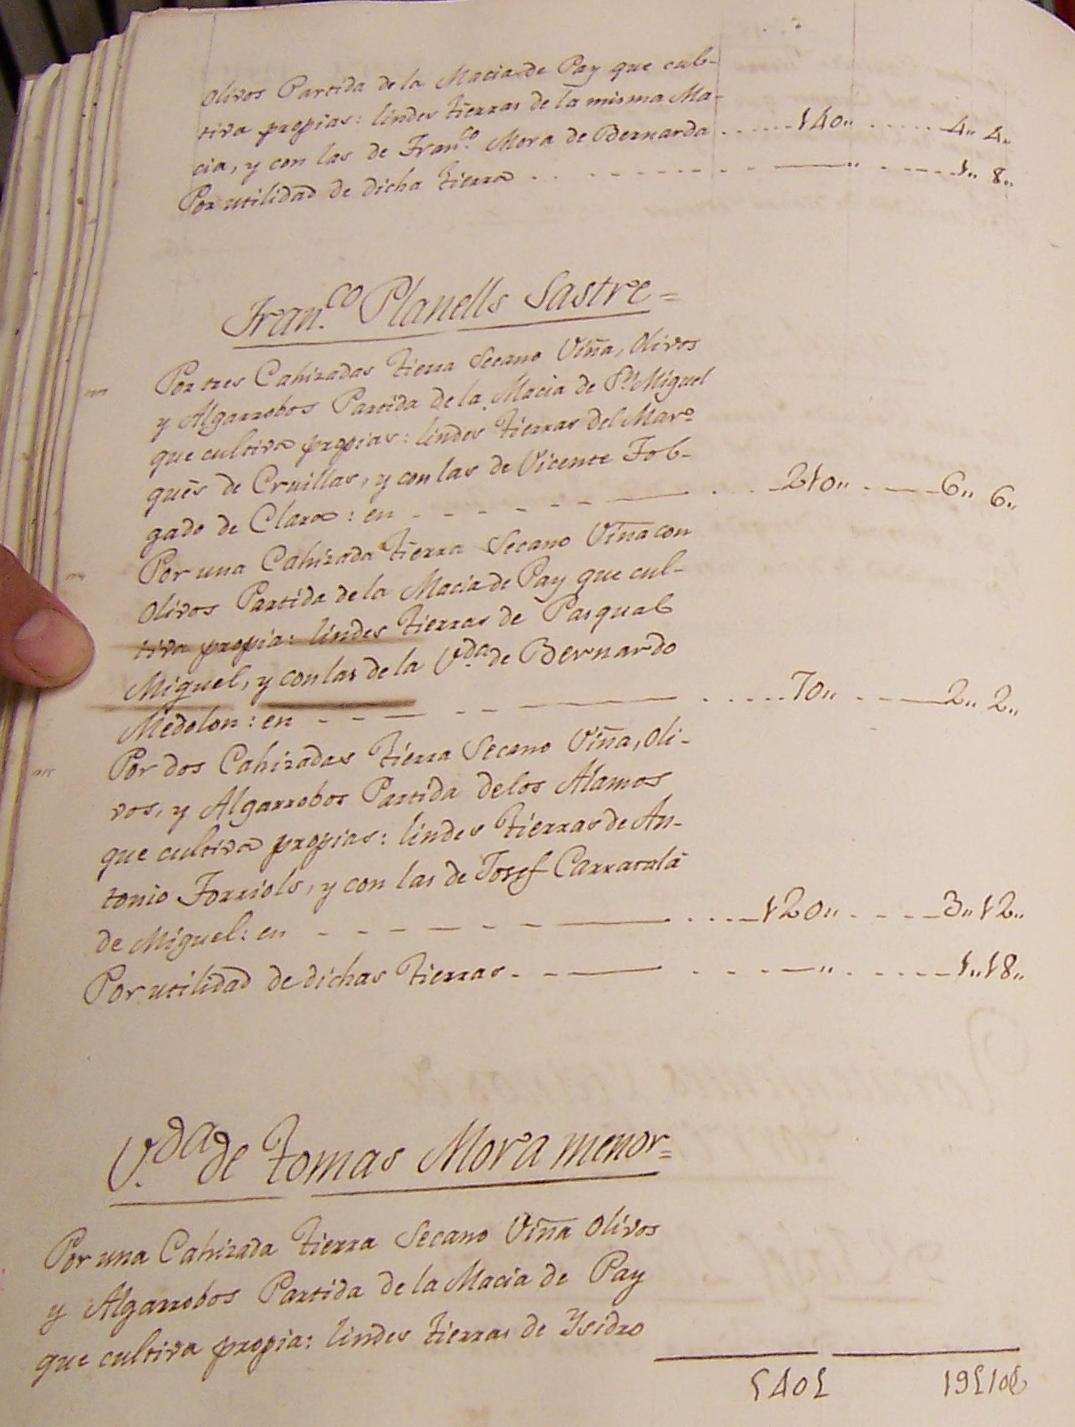 Olivos Partida de la Macia de Pay que cul-
tiva propias: lindes tierras de la misma Ma-
cia, y con las de Fran.co Mora de Bernarda ...... 140,, ...... 4,, 4,,
Por utilidad de dicha tierra ...... — ,, ...... 1,, 8,,
Fran.co Planells Sastre =
Por tres Cahizadas tierra Secano Viña, Olivos
y Algarrobos Partida de la Macia de Pl. Miguel
que cultiva propias: lindes tierras del Mar-
qués de Cruillas, y con las de Vicente Fob-
gado de Clara: en ...... 210,, ...... 6,, 6,,
Por una Cahizada tierra Secano Viña con
Olivos Partida de la Macia de Pay que cul-
tiva propia: lindes tierras de Pasqual
Miguel, y con las de la V.da de Bernardo
Medolon: en ...... 70,, ...... 2,, 2,,
Por dos Cahizadas tierra Secano Viña, Oli-
vos, y Algarrobos Partida de los Alamos
que cultiva propias: lindes tierras de An-
tonio Forriols, y con las de Josef Carratalá
de Miguel: en ...... 120,, ...... 3,, 12,,
Por utilidad de dichas tierras ...... — ,, ...... 1,, 18,,
V.da de Tomas Mora menor =
Por una Cahizada tierra Secano Viña Olivos
y Algarrobos Partida de la Macia de Pay
que cultiva propia: lindes tierras de Ysidro